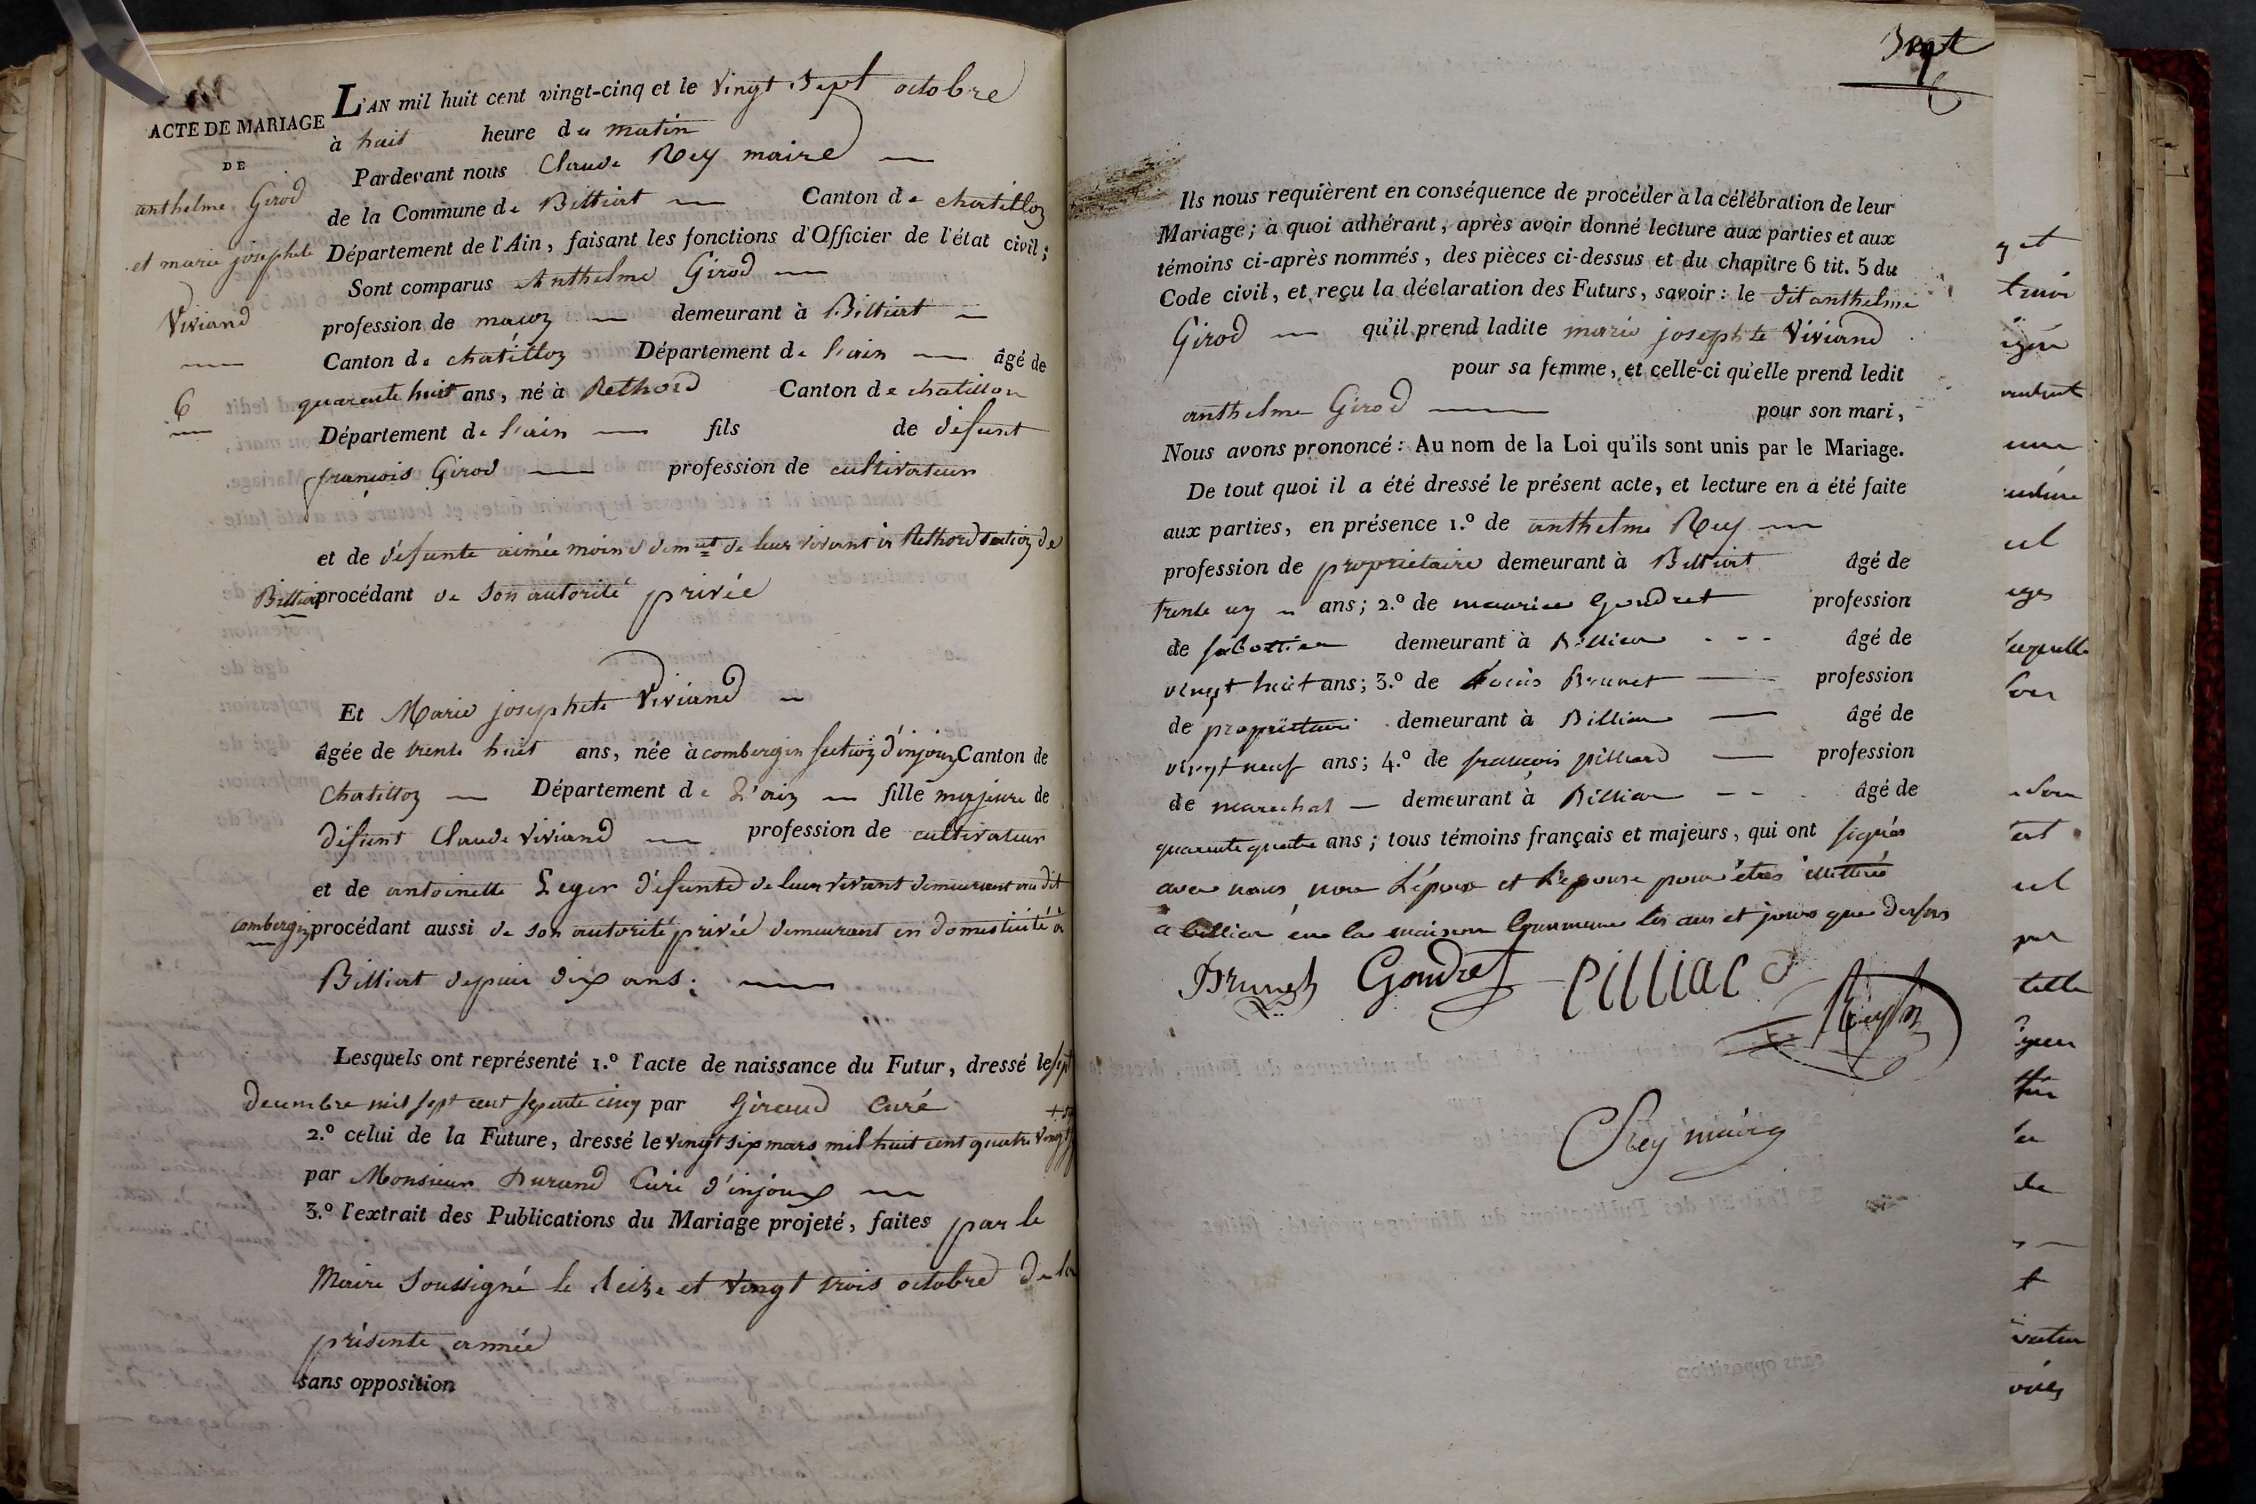 ACTE DE MARIAGE
DE
anthelme Girod
et marie josephte
Viviand
6
L'AN mil huit cent vingt-cinq et le vingt Sept octobre
à huit heure du matin
Pardevant nous Claude Rey maire
de la Commune de Billiat Canton de chatillon
Département de l'Ain, faisant les fonctions d'Officier de l'état civil;
Sont comparus Anthelme Girod
profession de maçon demeurant à Billiat
Canton de chatillon Département de l'ain âgé de
quarante huit ans, né à Rethord Canton de chatillon
Département de l'ain fils de défunt
françois Girod profession de cultivateur
et de défunte aimée moine dem.nt de leur vivant à Rethord section de
Billiat procédant de son autorité privée
Et Marie josephte Viviand
âgée de trente huit ans, née à combergin section d'injoux Canton de
Chatillon Département de L'ain fille majeure de
défunt Claude Viviand profession de cultivateur
et de antoinette Leger défunte de leur vivant demeurant au dit
combergin procédant aussi de son autorité privée demeurant en domesticité à
Billiat depuis dix ans.
Lesquels ont représenté 1.º l'acte de naissance du Futur, dressé le sept
decembre mil sept cent septente cinq par Giraud Curé
2.º celui de la Future, dressé le vingt six mars mil huit cent quatre vingt
par Monsieur Durand Curé d'injoux
3.º l'extrait des Publications du Mariage projeté, faites par le
Maire soussigné le seize et vingt trois octobre de la
présente année
sans opposition
Sept
Ils nous requièrent en conséquence de procéder à la célébration de leur
Mariage; à quoi adhérant, après avoir donné lecture aux parties et aux
témoins ci-après nommés, des pièces ci-dessus et du chapitre 6 tit. 5 du
Code civil, et reçu la déclaration des Futurs, savoir: le dit anthelme
Girod qu'il prend ladite marie josephte Viviand
pour sa femme, et celle-ci qu'elle prend ledit
anthelme Girod pour son mari,
Nous avons prononcé: Au nom de la Loi qu'ils sont unis par le Mariage.
De tout quoi il a été dressé le présent acte, et lecture en a été faite
aux parties, en présence 1.º de anthelme Rey
profession de propriétaire demeurant à Billiat âgé de
trente un ans; 2.º de maurice Gondret profession
de sabottier demeurant à Billiat âgé de
vingt huit ans; 3.º de Louis Brunet profession
de propriétaire demeurant à Billiat âgé de
vingt neuf ans; 4.º de françois pilliard profession
de marechal demeurant à Billiat âgé de
quarante quatre ans; tous témoins français et majeurs, qui ont signés
avec nous, non L'époux et l'epouse pour êtres illettrés
a billiat en la maison Commune les an et jours que dessus
Brunet Gondret Pilliard Rey
Rey maire